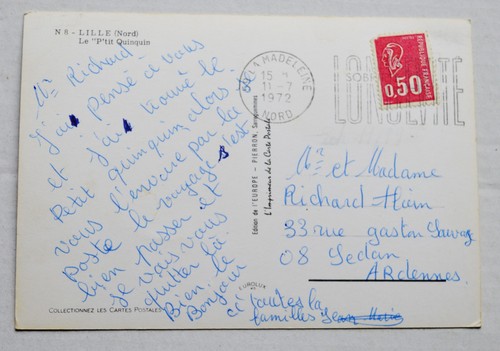 N 8 - LILLE (Nord)
Le "P'tit Quinquin
Mr Richard
j'ai pensé à vous
et j'ai trouvé le
Petit Quinquin, alors je
vous l'envoie par la
Poste le voyage s'est
bien passer et
je vais vous
quitter là.
Bien le
Bonjour
ci toutes la
familles
COLLECTIONNEZ LES CARTES POSTALES
Edition de l'EUROPE - PIERRON, Sarreguemines
L'Imprimeur de la Carte Postale
EUROLUX
LA MADELEINE
15
11-7
1972
NORD
SOB
LONGEVITE
REPUBLIQUE FRANÇAISE
0,50
Mr et Madame
Richard Hain
33 rue gaston Sauvage
08 Sedan
ARdennes